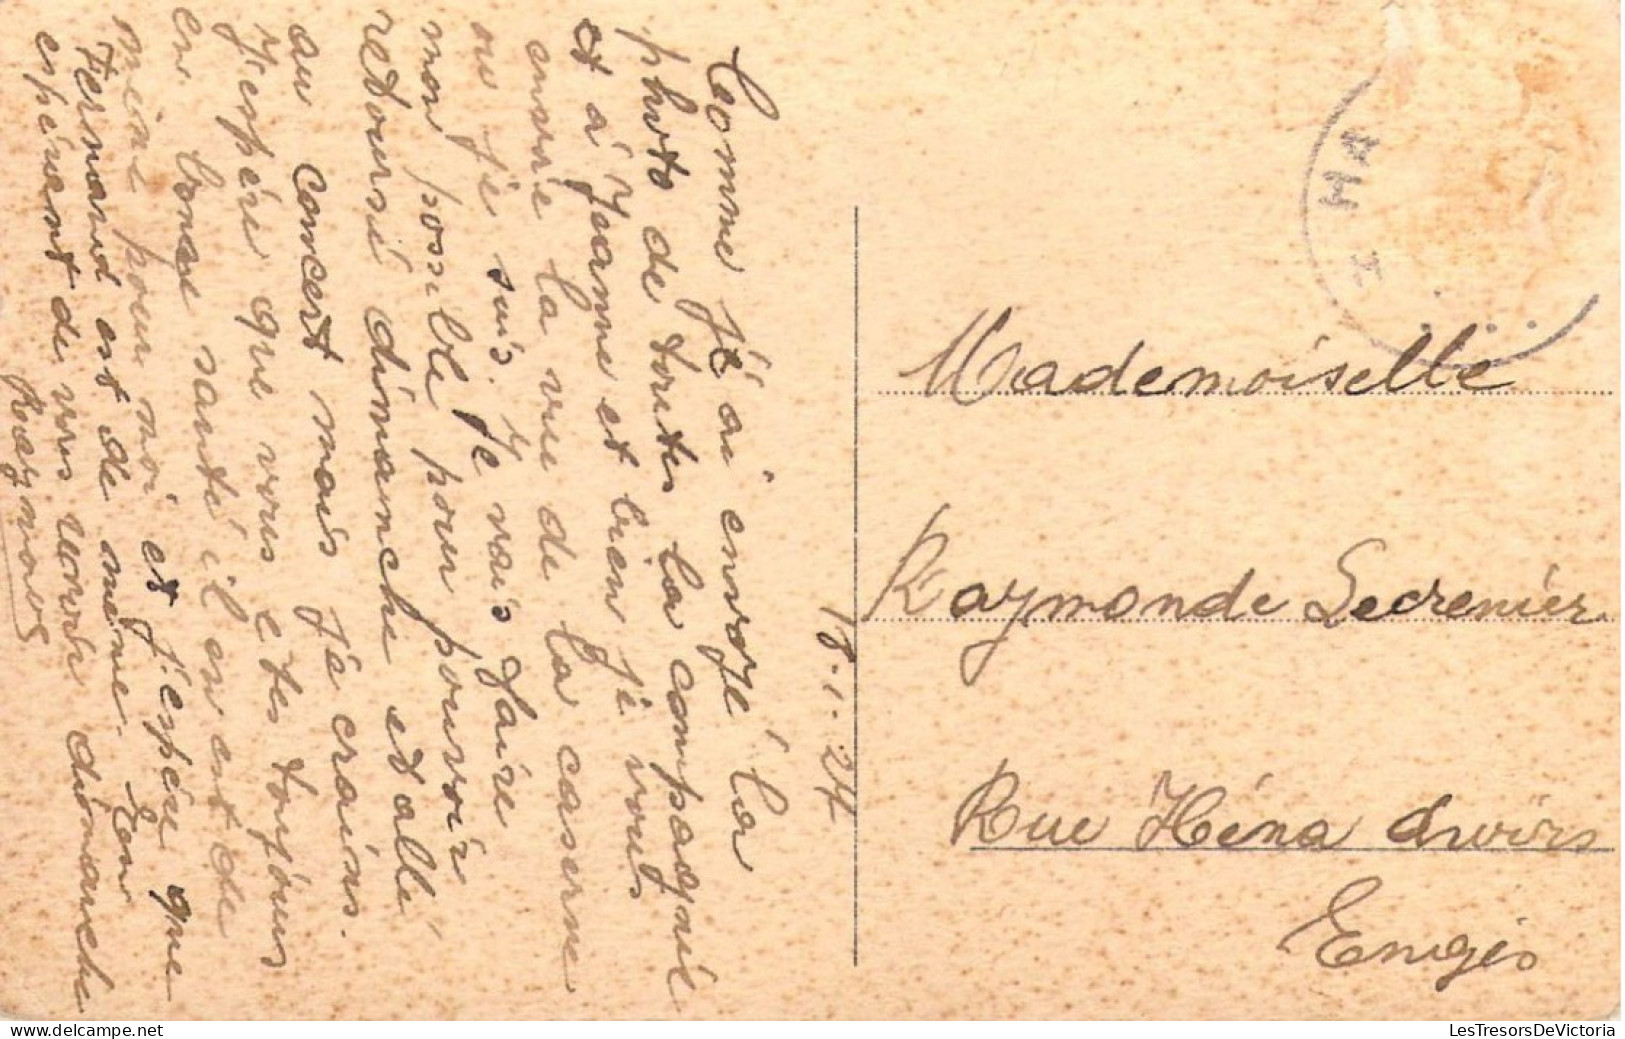 18.1.24
Comme je ai envoyé la
photo de toutes la compagnie
et à Jeanne et bien je vous
envoie la vue de la caserne
ou je suis. Je vais faire
mon possible pour pouvoir
retourné dimanche et allé
au concert mais je crains.
J'espère que vous etes toujours
en bonne santé il en est de
même pour moi et j'espère que
Fernand est de même. En
espérant de vous revoir dimanche
Raymond
HA
Mademoiselle
Raymonde Lecrenier
Rue Héna
Engis
LesTresorsDeVictoria